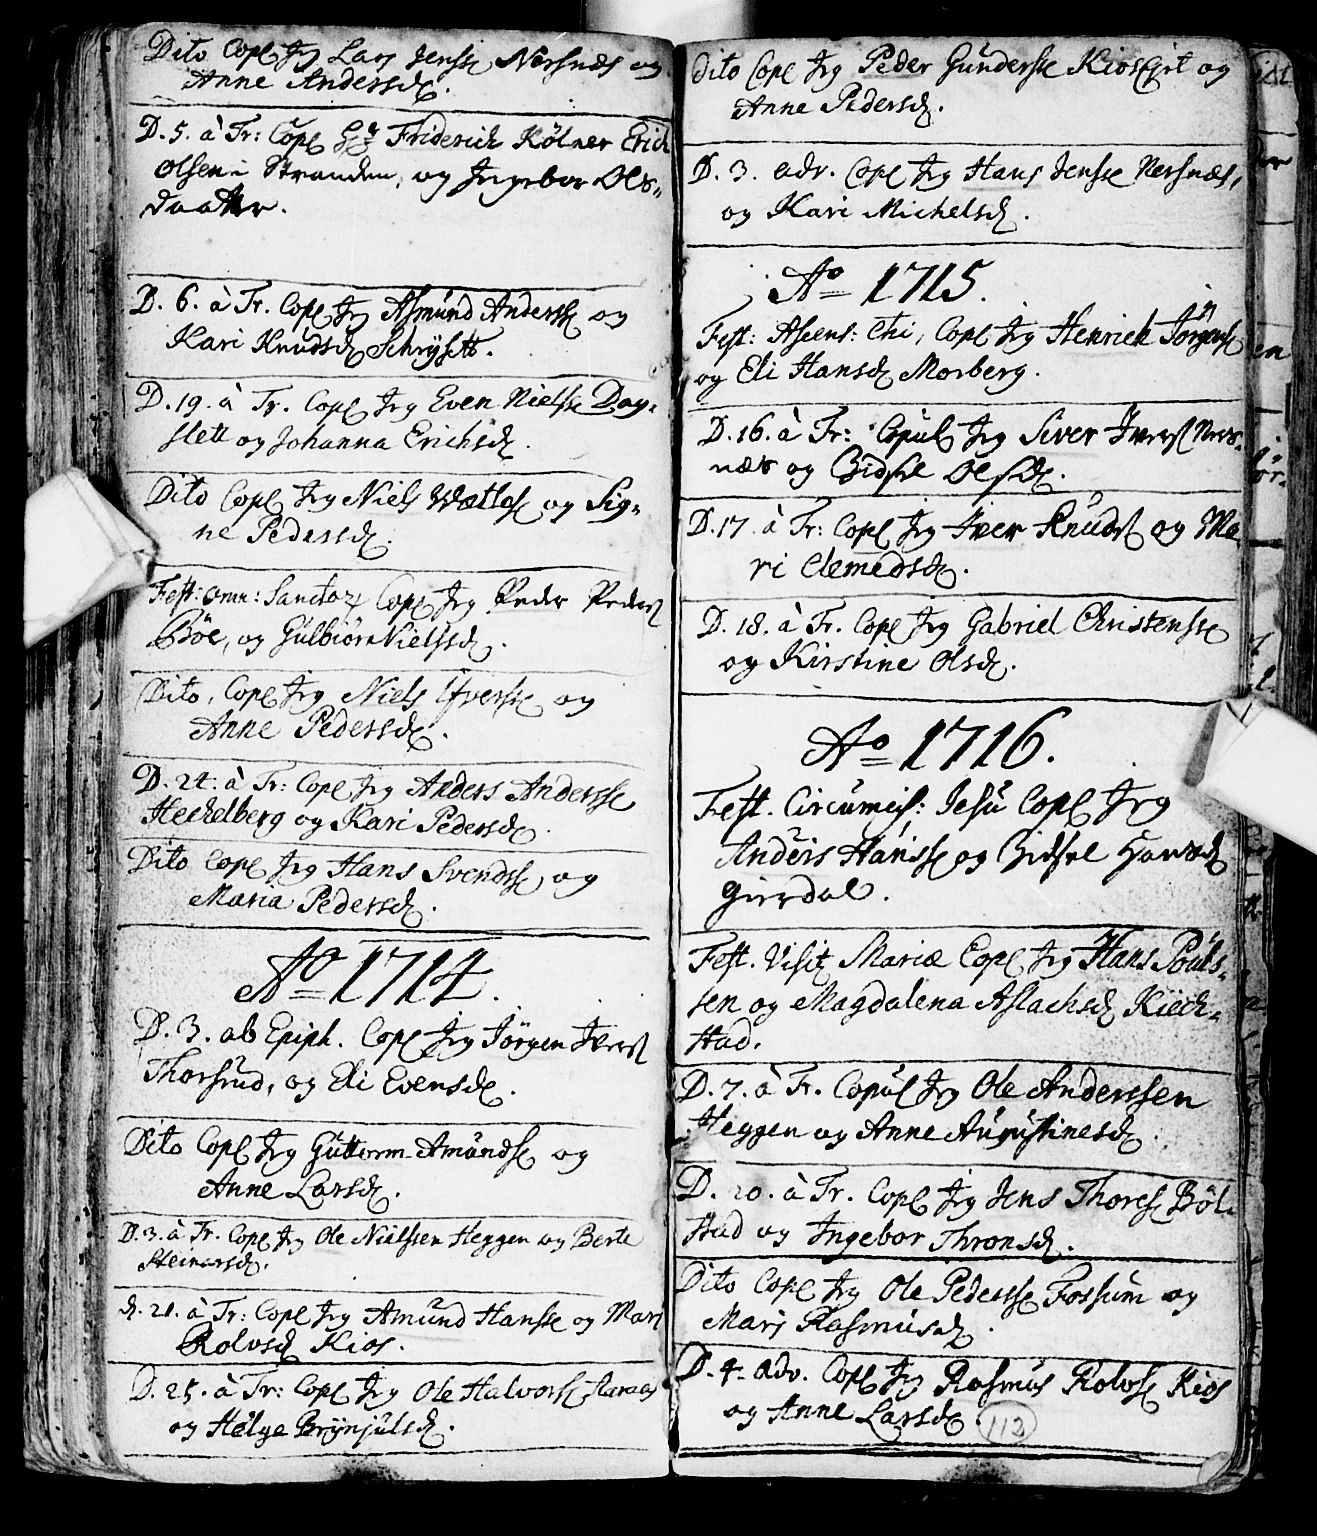 Dito Copl Jeg Lars Jensse Nersnæs og
Anne Andersd.
D. 5. à Tr: Copl Hr Friderich Kölner Erich
Olsen i Stranden, og Ingebor Ols-
daatter.
D. 6. à Tr. Copl Jeg Asmund Anderss og
Kari Knudsd
D. 19. à Tr. Copl Jeg Even Nielsse Dag-
slett og Johanna Erichsd.
Dito Copl Jeg Niels og Sig-
ne Pedersd.
Fest: Omn: Sanctor Copl Jeg Peder Peders
Böe, og Gulbiör Nielsd.
Dito, Copl Jeg Niels Iversse og
Anne Pedersd.
D. 24. à Tr: Copl Jeg Anders Andersse
Heckelberg og Kari Pedersd.
Dito Copl Jeg Hans Svendss og
Maria Pedersd.
Ao 1714.
D. 3. ab Epiph. Copl Jeg Jörgen Ivers
Thorsrud, og Eli Evensd.
Dito Copl Jeg Guttorm Amunds og
Anne Larsd.
D. 3. à Tr. Copl Jeg Ole Nielssen Heggen og Berte
Steinarsd.
d. 21. à Tr: Copl Jeg Amund Hansse og Mari
Rolvsd Kios.
D. 25. à Tr: Copl Jeg Ole Halvors
og Helge Brynjulsd.
Dito Copl Jeg Peder Gunderse og
Anne Pedersd.
D. 3. adv. Copl Jeg Hans Jensse Nersnæs,
og Kari Michelsd.
Ao 1715.
Fest: Ascens: Chi, Copl Jeg Henrich Jörgens
og Eli Hansd Morberg.
D. 16. à Tr: Copul Jeg Siver Ivers Ners-
næs og Gidsel Olsd.
D. 17. à Tr: Copl Jeg Iver Knuds og Ma-
ri Clemedsd.
D. 18. à Tr. Copl Jeg Gabriel Christensse
og Kirstine Olsd.
Ao 1716.
Fest. Circumcis: Jesu Copl Jeg
Anders Hanss og Gidsel Hansd
Gierdal.
Fest. Visit Mariæ Copl Jeg Hans Pouls-
sen og Magdalena Aslachsd Kieck-
stad.
D. 7. à Tr. Copul Jeg Ole Anderssen
Heggen og Anne Augustinesd.
D. 20. à Tr. Copl Jeg Jens Thores Böl-
stad og Ingebor Thronsd.
Dito Copl Jeg Ole Pedersse Fossum og
Mari Rasmusd.
D. 4. adv. Copl Jeg Rasmus Rolvs Kios
og Anne Larsd.
112